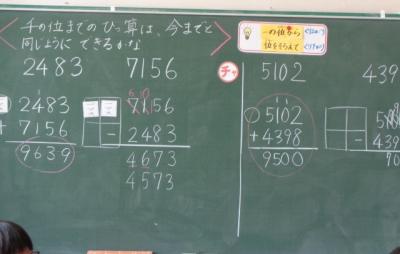 千の位までのひっ算は、今までと
同じようにできるかな
2483 7156
2483
+7156
9639
6 10
7156
-2483
4673
4573
一の位から
位をそろえて
チャ
5102 439
1 1
5102
+4398
9500
439
70